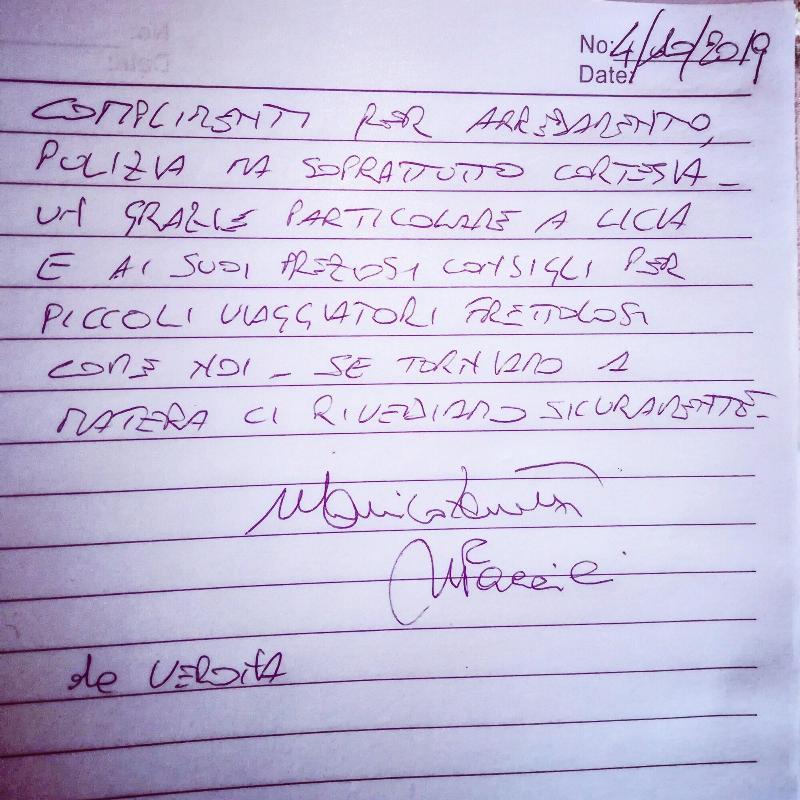 No: 4/10/2019
Date:
COMPLIMENTI PER ARREDAMENTO,
PULIZIA MA SOPRATTUTTO CORTESIA_
UN GRAZIE PARTICOLARE A LICIA
E AI SUOI PREZIOSI CONSIGLI PER
PICCOLI VIAGGIATORI FRETTOLOSI
COME NOI_ SE TORNIAMO A
MATERA CI RIVEDIAMO SICURAMENTE_
da